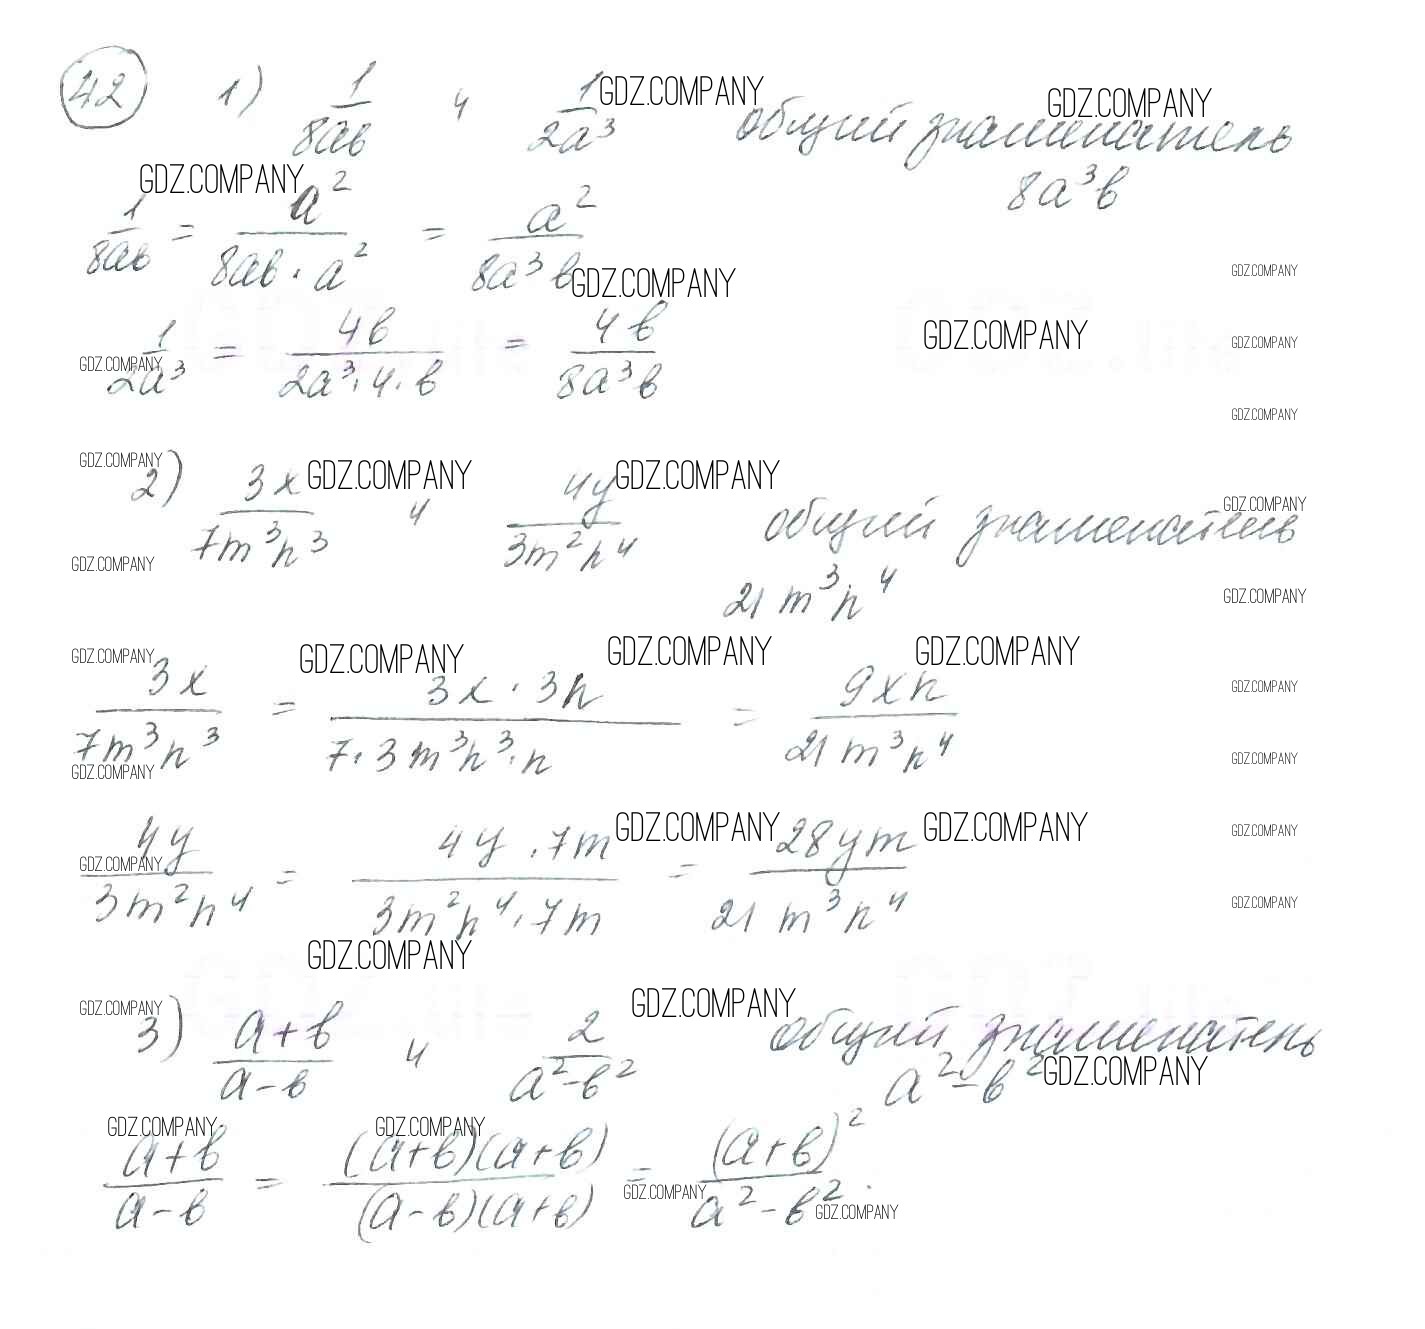 42 1) 1/8ab и 1/2a³ общий знаменатель
8a³b
1/8ab = a²/8ab·a² = a²/8a³b
1/2a³ = 4b/2a³·4·b = 4b/8a³b
2) 3x/7m³n³ и 4y/3m²n⁴ общий знаменатель
21m³n⁴
3x/7m³n³ = 3x·3n/7·3m³n³·n = 9xn/21m³n⁴
4y/3m²n⁴ = 4y·7m/3m²n⁴·7m = 28ym/21m³n⁴
3) a+b/a-b и 2/a²-b² общий знаменатель
a²-b²
a+b/a-b = (a+b)(a+b)/(a-b)(a+b) = (a+b)²/a²-b².
GDZ.COMPANY